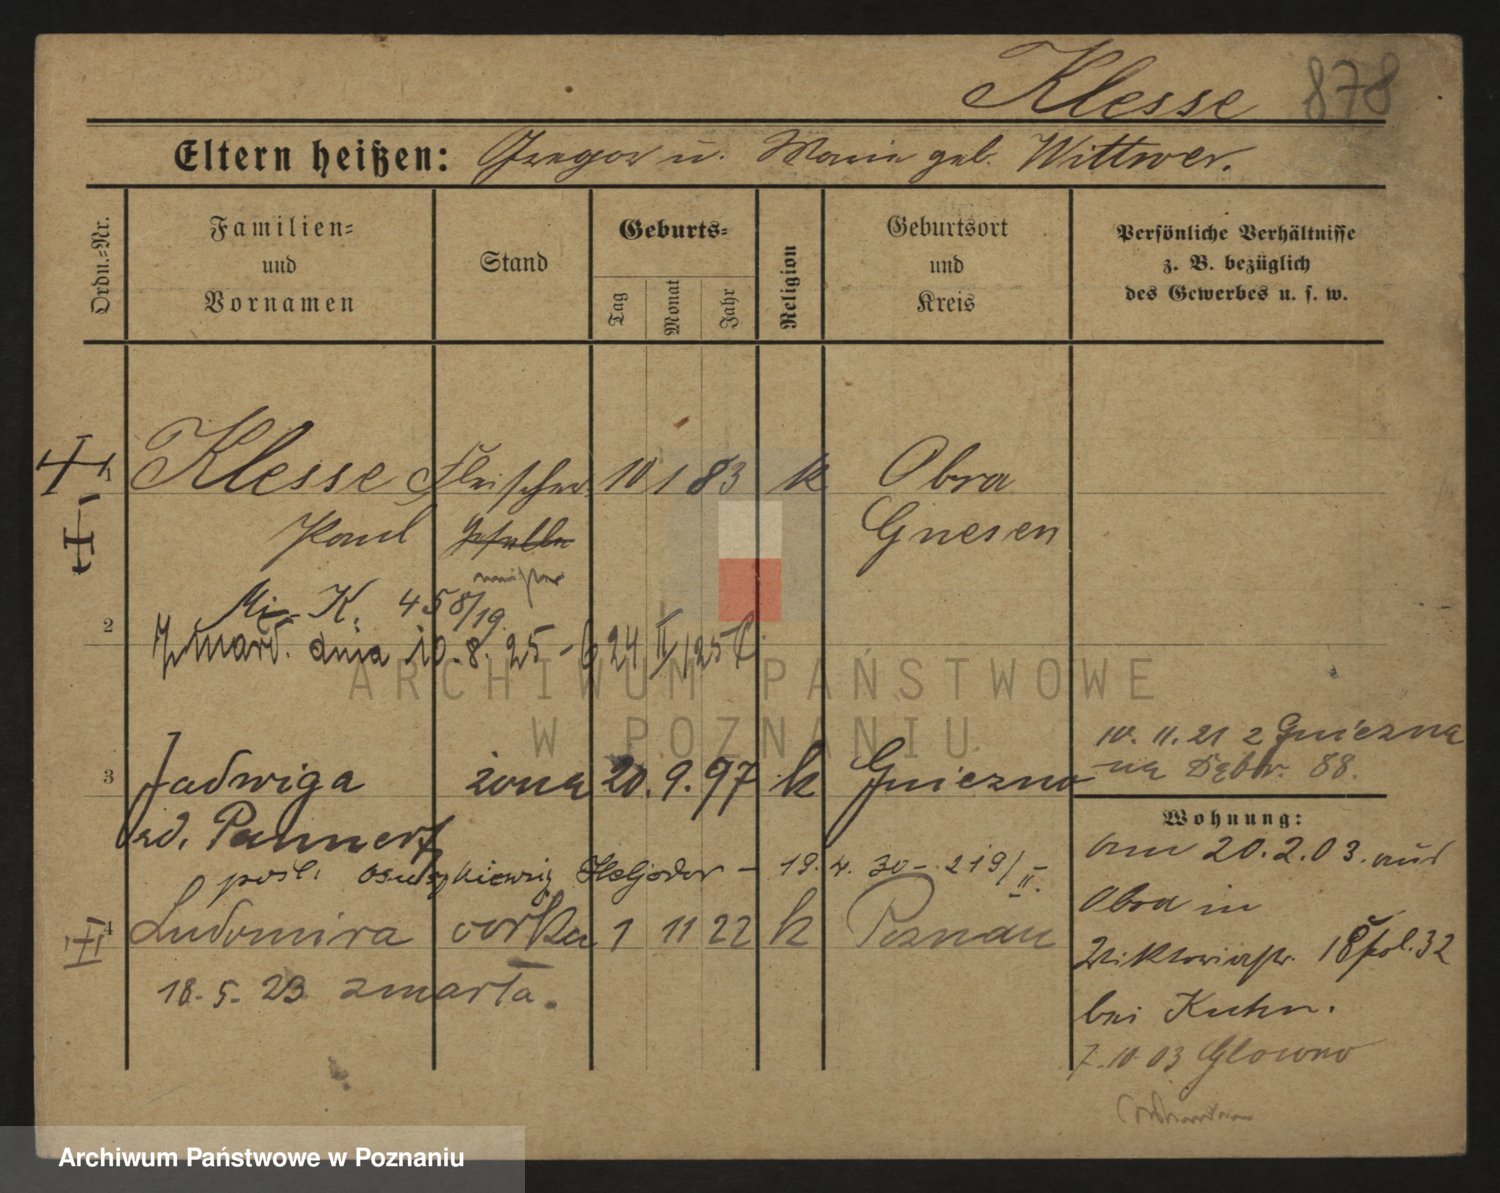 Klesse 878
Eltern heißen: Gregor u. Maria geb. Wittwer.
Ordn.-Nr.
Familien-
und
Vornamen
Stand
Geburts-
Tag
Monat
Jahr
Religion
Geburtsort
und
Kreis
Persönliche Verhältnisse
z. B. bezüglich
des Gewerbes u. s. w.
1 Klesse Fleischer 10 1 83 k Obra
Paul Geselle Gnesen
meister
K. 458/19.
2 zmarł. dnia 10.8.25 - 24 II 25
ARCHIWUM PAŃSTWOWE
W POZNANIU
10. 11. 21 z Gniezna
na Dąbr. 88.
3 Jadwiga żona 20. 9. 97 k Gniezno
Pannert
pośl. Heljodor - 19. 4. 30 - 219/II.
4 Ludomira córka 1 11 22 k Poznań
18. 5. 23 zmarła.
Wohnung:
am 20.2.03. aus
Obra in
Viktoriastr. 18 pol. 32
bei Kuhn.
7.10.03 Glowno
Archiwum Państwowe w Poznaniu